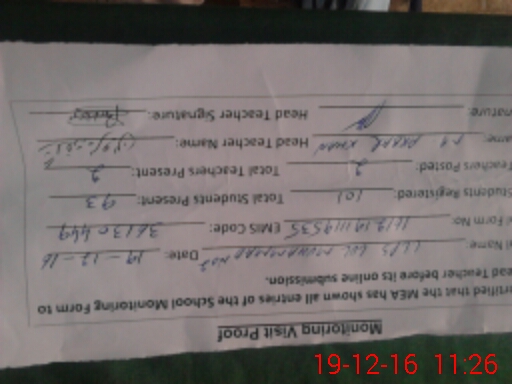 Monitoring Visit Proof
rtified that the MEA has shown all entries of the School Monitoring Form to
ead Teacher before its online submission.
l Name Date: 19-12-16
l Form No: EMIS Code:
Students Registered: 101 Total Students Present: 93
Teachers Posted: 2 Total Teachers Present: 2
ame: KHAN Head Teacher Name:
nature: Head Teacher Signature:
19-12-16 11:26